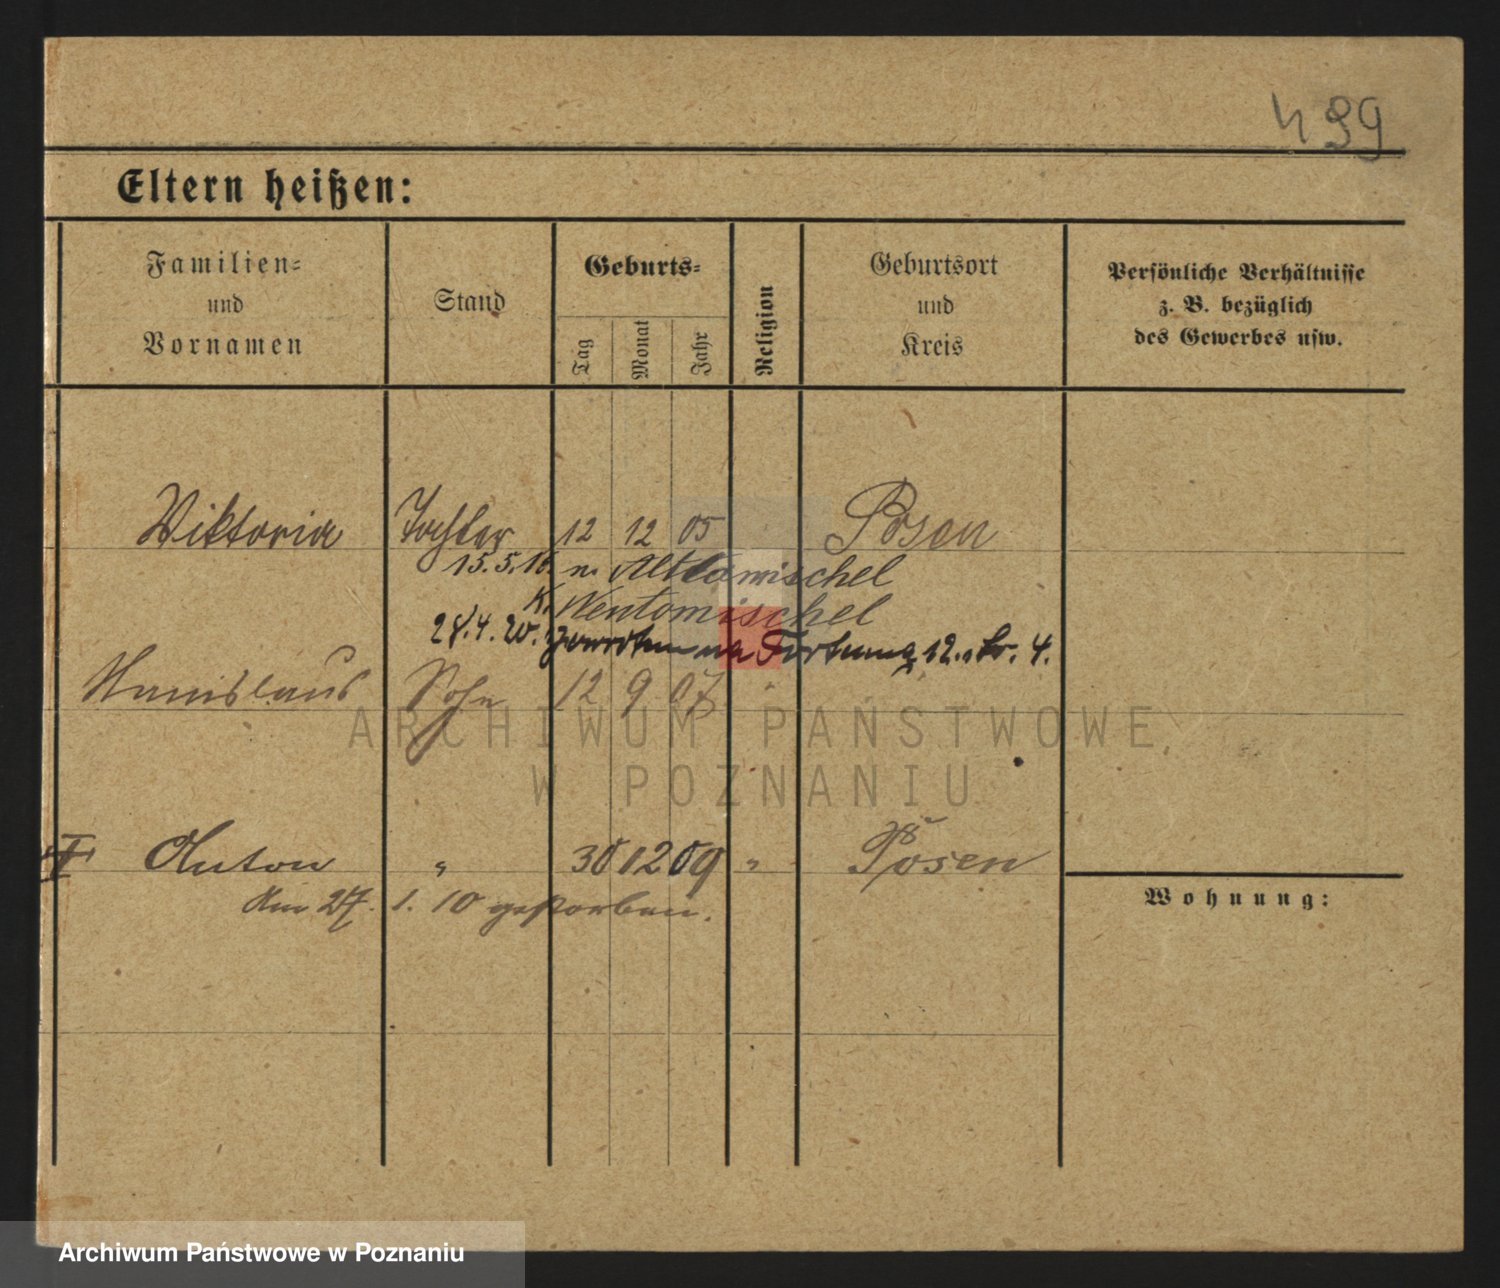 499
Eltern heißen:
Familien=
und
Vornamen
Stand
Geburts=
Tag
Monat
Jahr
Religion
Geburtsort
und
Kreis
Persönliche Verhältnisse
z. B. bezüglich
des Gewerbes usw.
Viktoria Tochter 12 12 05 Posen
15.5.16. n. Alttomischel
K. Neutomischel
28.4.20. na 12. 4.
Stanislaus Sohn 12 9 07
ARCHIWUM PAŃSTWOWE
W POZNANIU
Anton " 30 12 09 " Posen
Am 27. 1. 10 gestorben.
Wohnung:
Archiwum Państwowe w Poznaniu